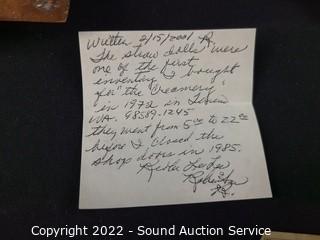 Written 2/15/2001
The straw dolls were
one of the first
inventory I bought
for "the Creamery"
in 1972 in
WA. 98589-1245
they went from 5 00 to 22 00
before I closed the
shop doors in 1985.
Copyright 2022 - Sound Auction Service